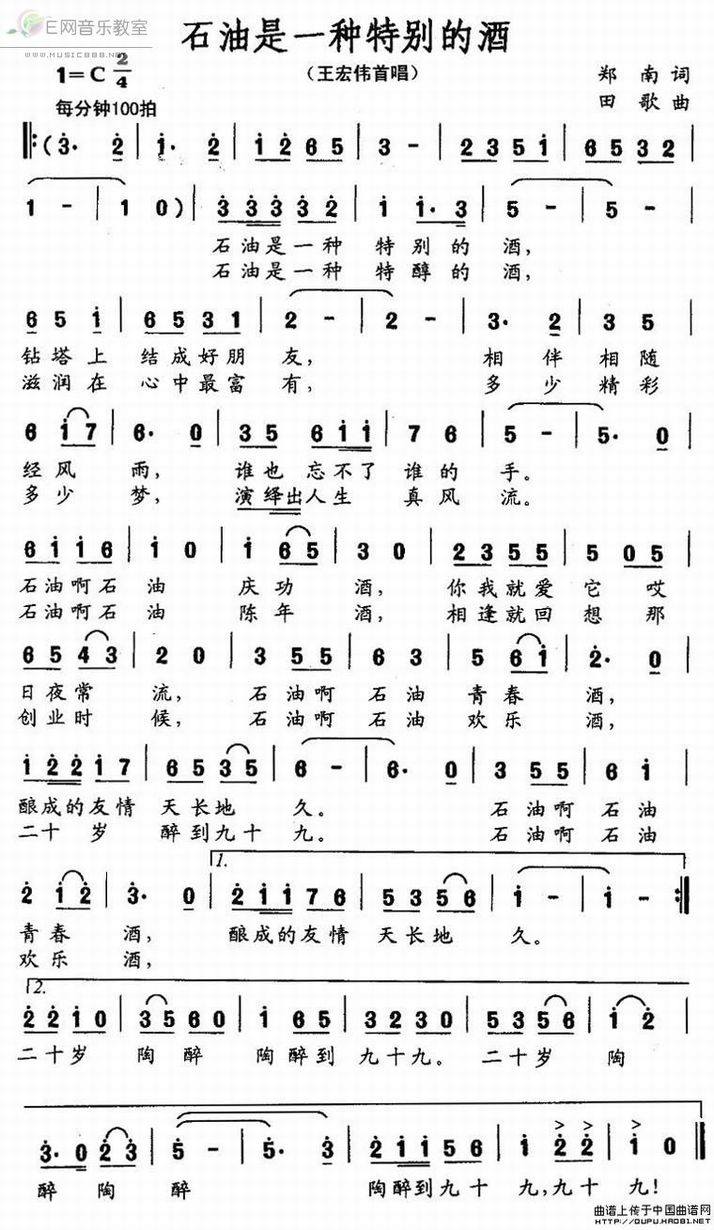 E网音乐教室
WWW.MUSIC888.NET
石油是一种特别的酒
1=C 2/4
(王宏伟首唱)
郑 南 词
每分钟100拍
田 歌 曲
石油是一种 特别的 酒,
石油是一种 特醇的 酒,
钻塔上 结成好朋 友, 相 伴 相随
滋润在 心中最富 有, 多 少 精彩
经风 雨, 谁也 忘不了 谁的 手。
多少 梦, 演绎出人生 真风 流。
石油啊石 油 庆功 酒, 你我就爱 它 哎
石油啊石 油 陈年 酒, 相逢就回 想 那
日夜常 流, 石油啊 石油 青春 酒,
创业时 候, 石油啊 石油 欢乐 酒,
酿成的友情 天长地 久。 石油啊 石油
二十 岁 醉到九十 九。 石油啊 石油
1.
青春 酒, 酿成的友情 天长地 久。
欢乐 酒,
2.
二十岁 陶 醉 陶 醉到 九十九。 二十岁 陶
醉 陶 醉 陶醉到九十 九,九十 九!
曲谱上传于中国曲谱网
HTTP://QUPU.HAO81.NET